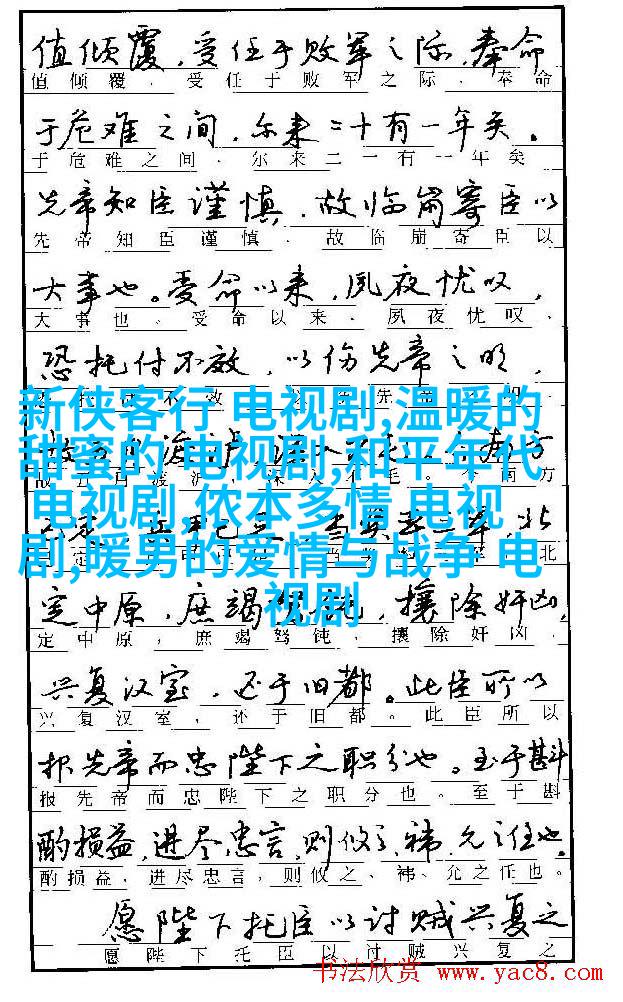 值倾覆，受任于败军之际，奉命
值倾覆．受任于败军之际．奉命
于危难之间，尔来二十有一年矣。
于危难之间．尔来二一有一年矣
先帝知臣谨慎，故临崩寄臣以
先帝知臣谨慎．故临崩寄臣以
大事也。受命以来，夙夜忧叹，
大事也．受命以来．夙夜忧叹．
恐托付不效，以伤先帝之明，
新侠客行 电视剧,温暖的
甜蜜的 电视剧,和平年代
电视剧 侬本多情 电视
剧,暖男的爱情与战争 电
视剧
南方
北
北
定中原，庶竭驽钝，攘除奸凶，
定中原，庶竭驽钝，攘除奸凶，
兴复汉室，还于旧都。此臣所以
兴复汉室，还于旧都。此臣所以
报先帝而忠陛下之职分也。至于斟
报先帝而忠陛下之职分也。至于斟
酌损益，进尽忠言，则攸之、袆、允之任也。
酌损益．进尽忠言，则攸之、袆、允之任也。
愿陛下托臣以讨贼兴复之
愿陛下托臣以讨贼兴复之
书法欣赏 www.yac8.com